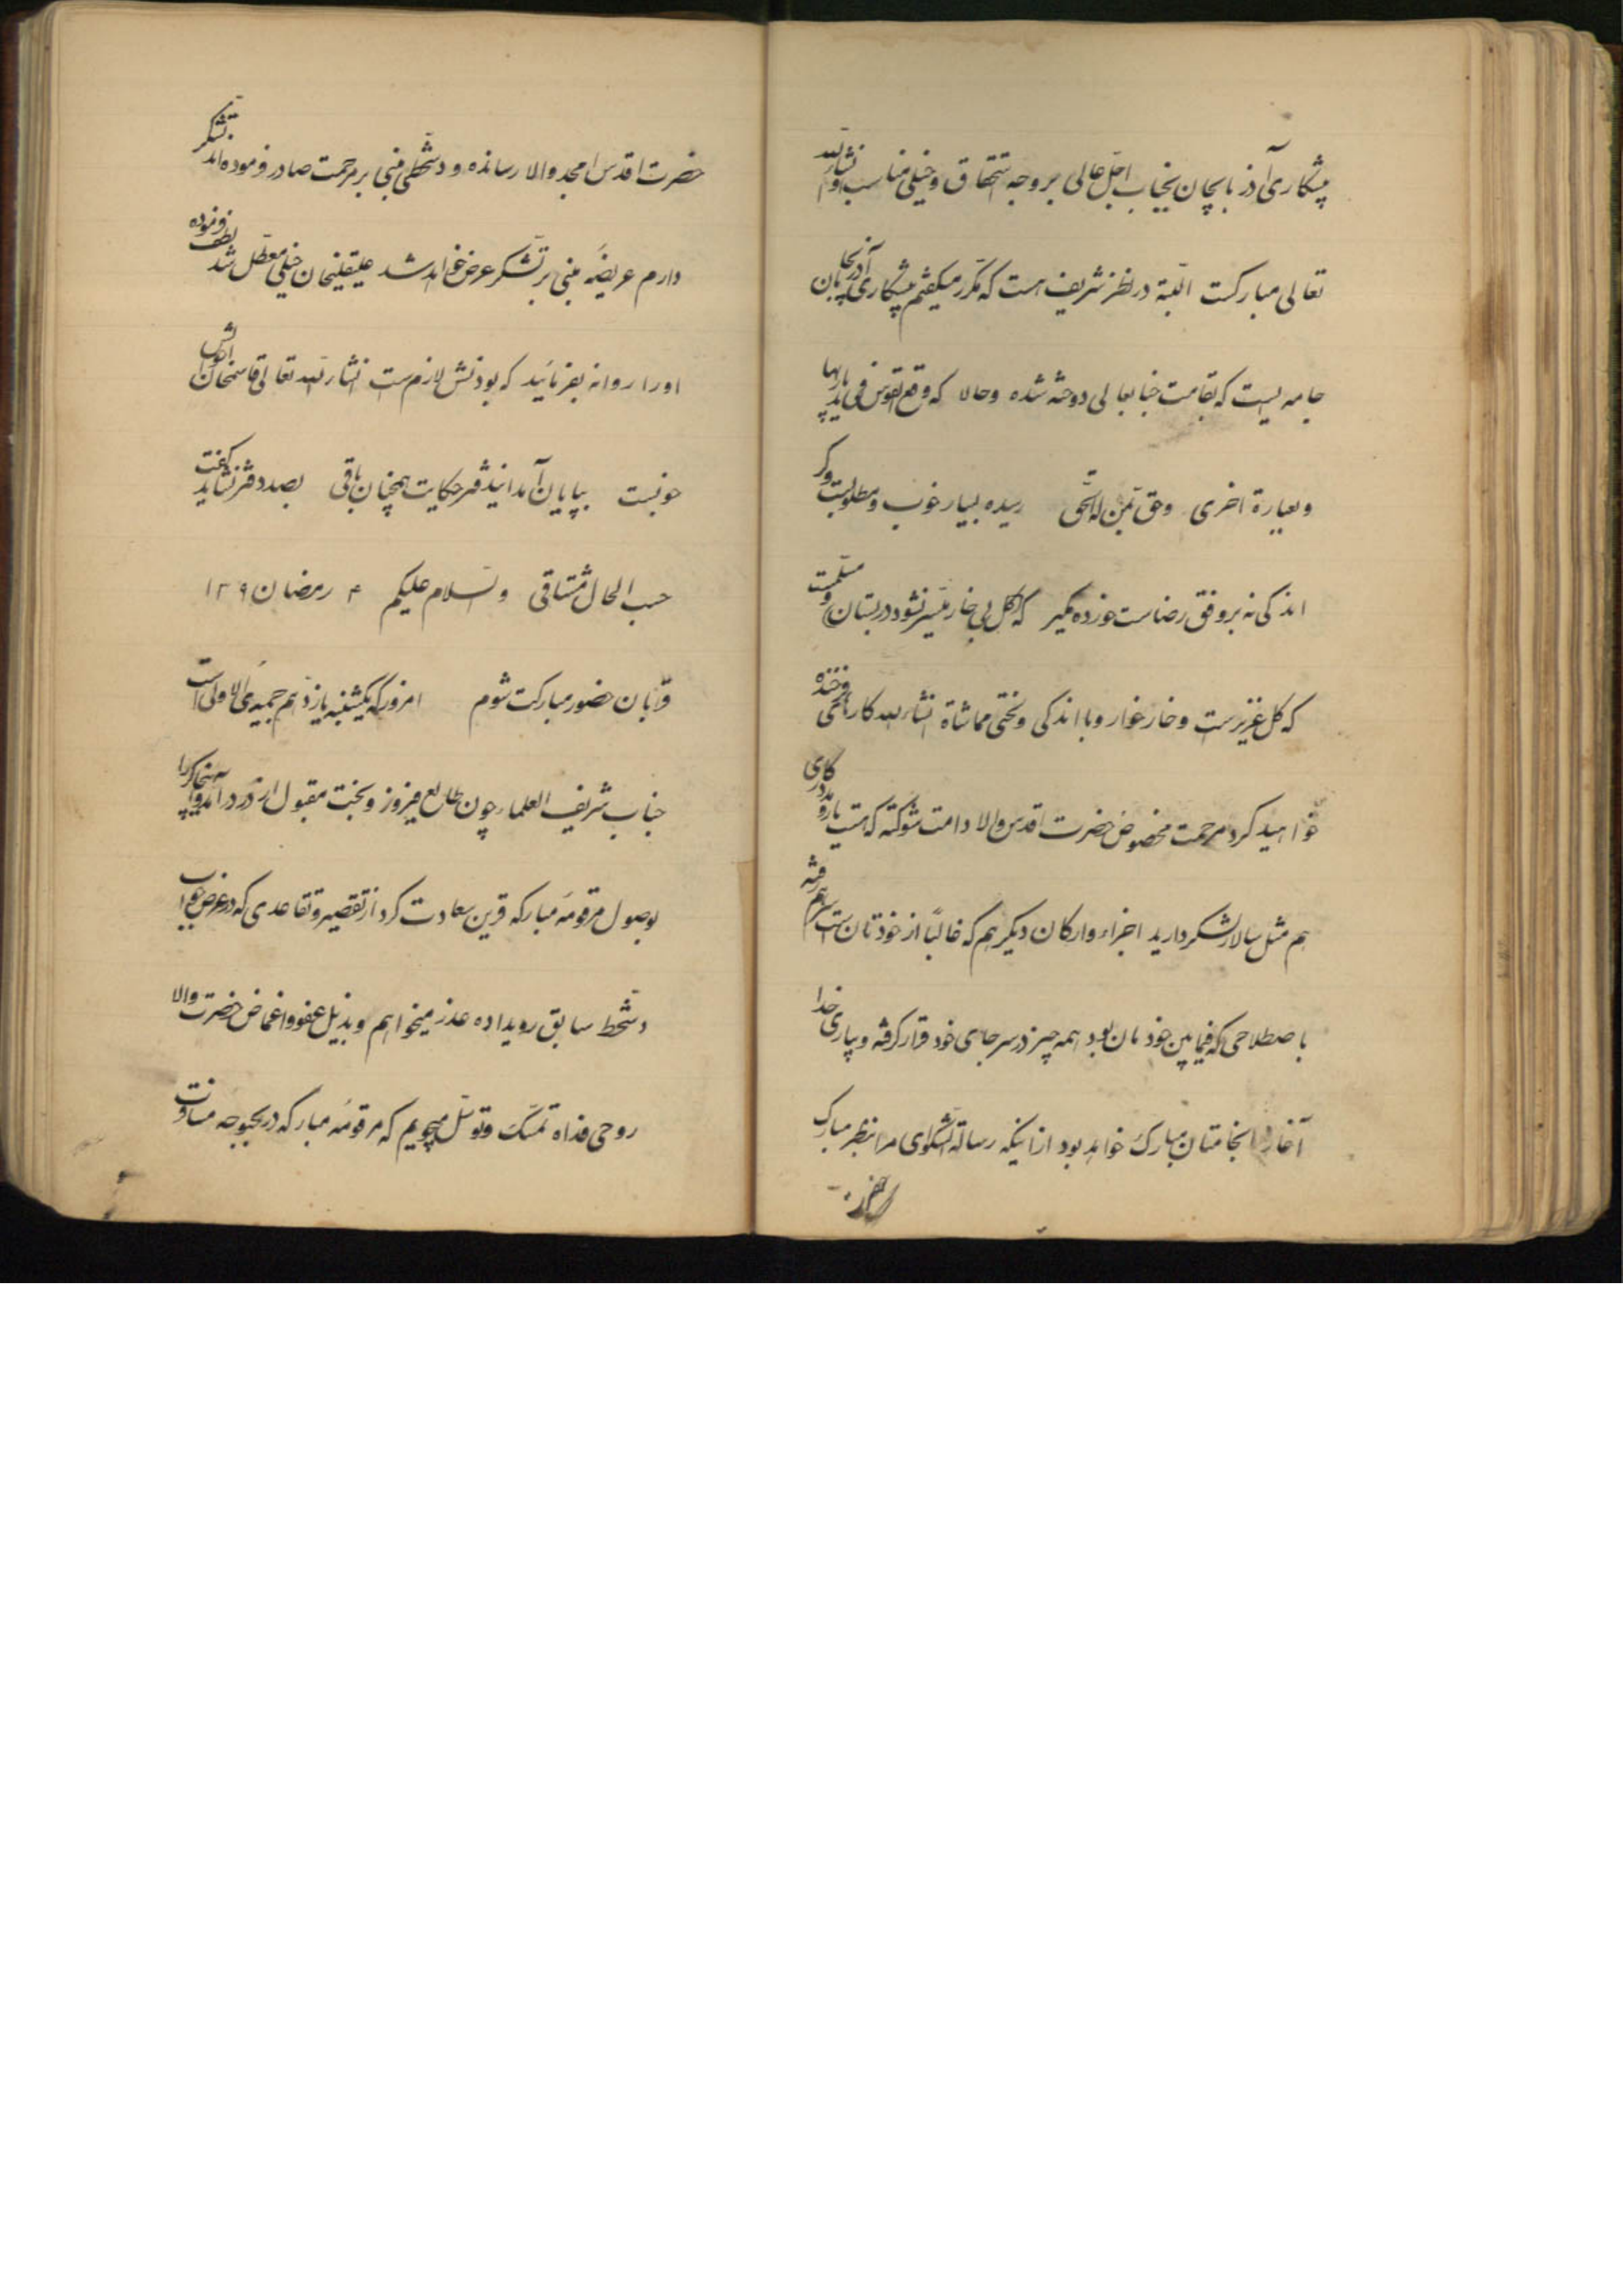 پیشکاری آذربایجان بجناب اجل عالی بر وجه استحقاق و خیلی مناسب و انشاءالله
تعالی مبارکست البته در نظر شریف هست که مکرر میگفتم پیشکاری آذربایجان
جامه ایست که بقامت جنابعالی دوخته شده و حالا که وقع القوس فی ید باریها
و بعبارة اخری وحق لمن له الحق رسیده بسیار خوب و مطلوبست و گر
اندکی نه بر وفق رضاست خورده مگیر که گل بی خار میسر نشود در بستان و مسلمست
که گل عزیز است و خار خوار و با اندکی و لختی مماشاة انشاءالله کارهای فرخنده
خواهید کرد مرحمت مخصوص حضرت اقدس والا دامت شوکته که هست یار و مددکاری
هم مثل سالار لشکر دارید اجزاء و ارکان دیگر هم که غالباً از خودتان است
باصطلاحی که فیمابین خودمان بود همه چیز در سر جای خود قرار گرفته و بیاری خدا
آغاز و انجامتان مبارک خواهد بود از اینکه رسالة الشکوای مرا بنظر مبارک
حضرت اقدس امجد والا رسانده و دستخطی مبنی بر مرحمت صادر فرموده اند تشکر
دارم عریضه مبنی بر تشکر عرض خواهد شد علیقلیخان خیلی معطل شد لطف فرموده
او را روانه بفرمائید که بودنش لازم است انشاءالله تعالی قاسمخان احوالش
خوبست بپایان آمد این دفتر حکایت همچنان باقی بصد دفتر نشاید گفت
حسب الحال مشتاقی والسلام علیکم ۴ رمضان ۱۳۰۹
قربان حضور مبارکت شوم امروز که یکشنبه یازدهم جمیدی الاولی است
جناب شریف العلماء چون طالع فیروز و بخت مقبول از در درآمد و
بوصول مرقومه مبارکه قرین سعادت کرد از تقصیر و تقاعدی که در عرض جواب
دستخط سابق رویداده عذر میخواهم و بذیل عفو و اغماض حضرت والا
روحی فداه تمسک و توسل میجویم که مرقومه مبارکه در بحبوحه مسافرت